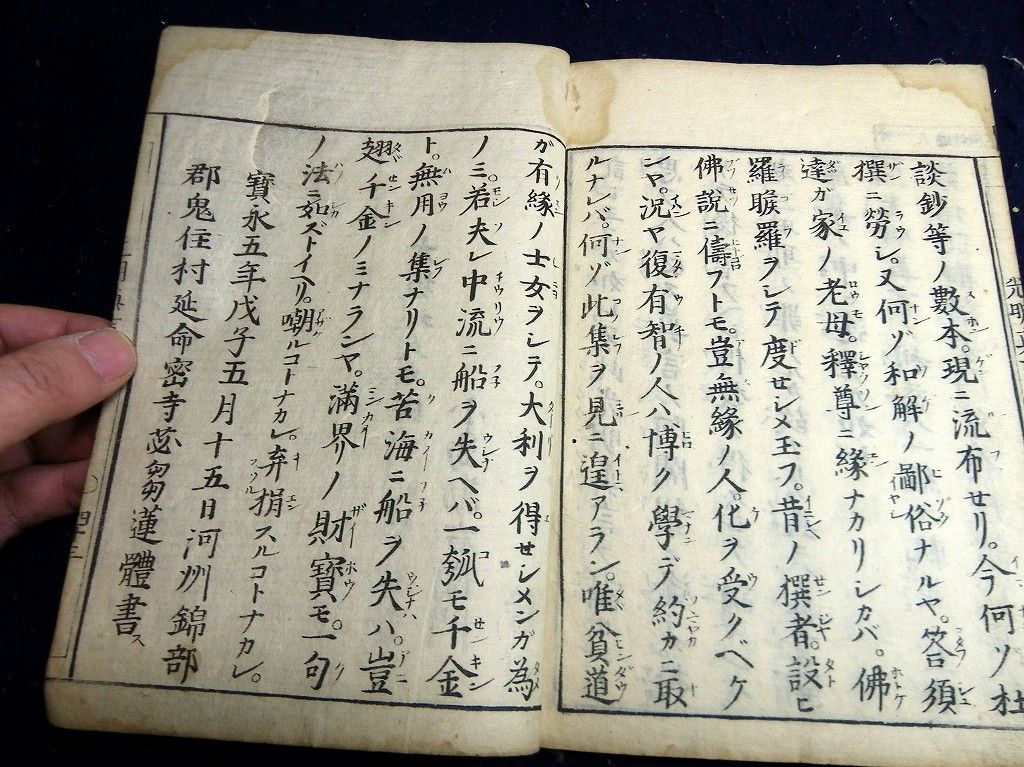 談鈔等ノ數本。現ニ流布セリ。今何ゾ杜
撰ニ勞シ。又何ゾ和解ノ鄙俗ナルヤ。答須
達ガ家ノ老母。釋尊ニ緣ナカリシカバ。佛
羅睺羅ヲシテ度セシメ玉フ。昔ノ撰者。設ヒ
佛說ニ儔フトモ。豈無緣ノ人。化ヲ受クベケ
ンヤ。況ヤ復有智ノ人ハ博ク學デ約カニ取
ルナレバ。何ゾ此集ヲ見ニ遑アラン。唯貧道
ガ有緣ノ士女ヲシテ。大利ヲ得セシメンガ為
ノミ。若夫レ中流ニ船ヲ失ヘバ。一瓠モ千金
ト。無用ノ集ナリトモ。苦海ニ船ヲ失ハヾ。豈
翅千金ノミナランヤ。滿界ノ財寶モ。一句
ノ法ニ如ズトイヘリ。嘲ルコトナカレ。弃捐スルコトナカレ。
寶永五年戊子五月十五日河州錦部
郡鬼住村延命密寺苾芻蓮體書ス